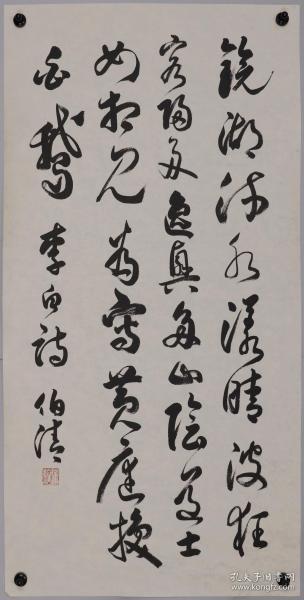 鏡湖流水漾晴波狂
客歸舟逸興多山陰道士
如相見為寫黄庭換
白鵝 李白詩 伯清
孔夫子旧书网
www.kongfz.com